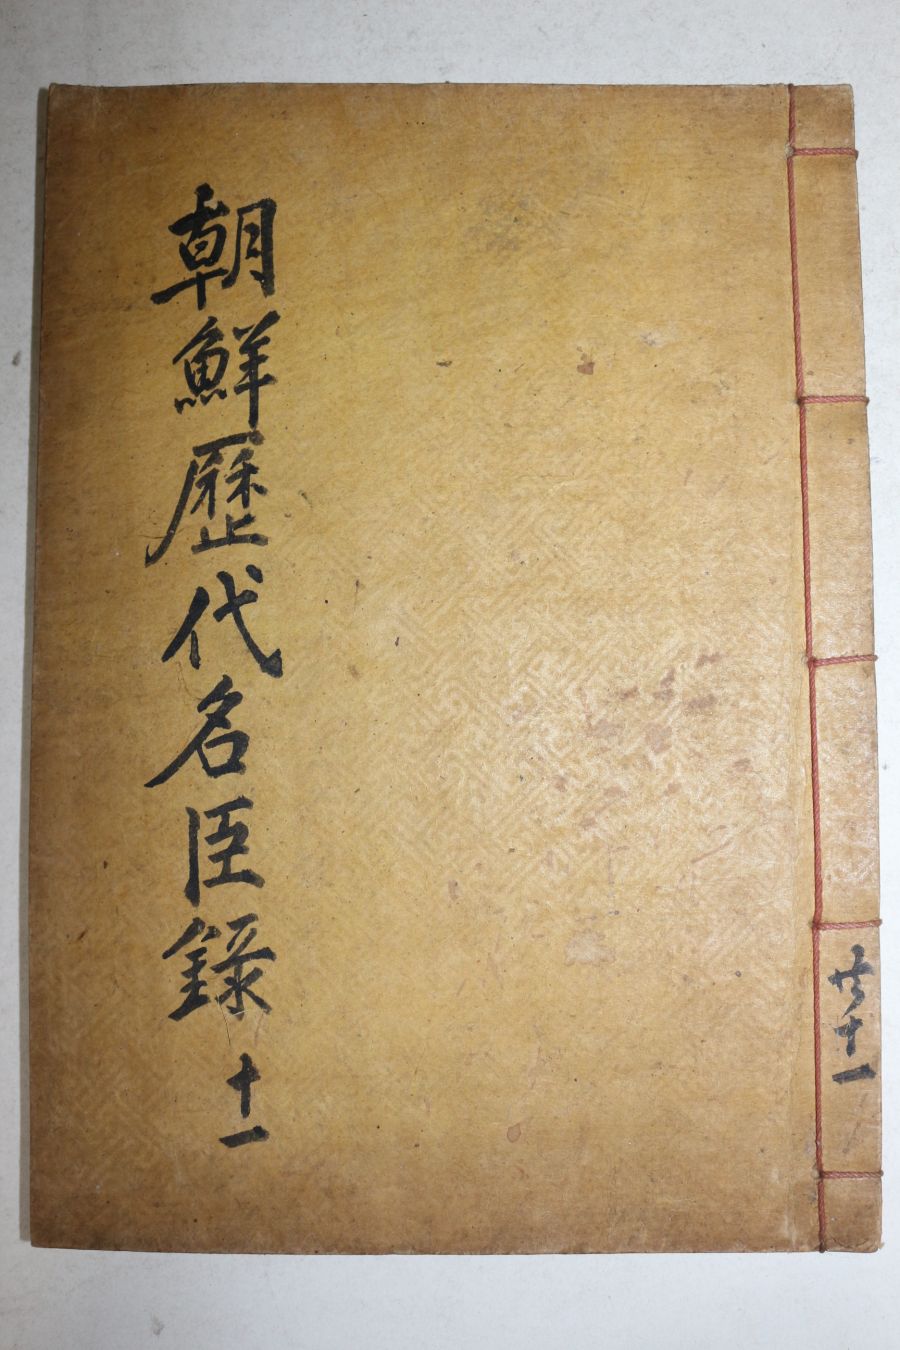 朝鮮歷代名臣錄 十一
共十一